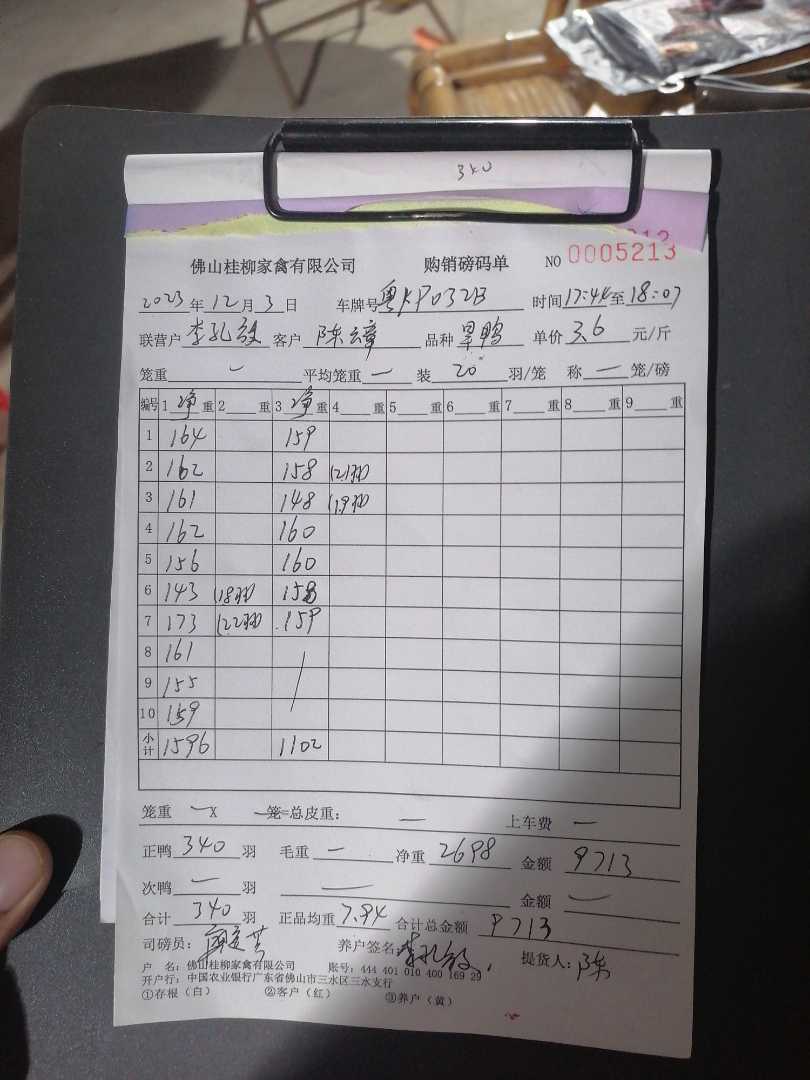 340
佛山桂柳家禽有限公司 购销磅码单 NO 0005213
2023年12月3日 车牌号粤KP032B 时间17:44至18:07
联营户李孔致 客户陈 品种旱鸭 单价3.6元/斤
笼重 — 平均笼重 — 装 20 羽/笼 称 — 笼/磅
编号 1净重 2重 3净重 4重 5重 6重 7重 8重 9重
1 164 159
2 162 158 (21羽)
3 161 148 (19羽)
4 162 160
5 156 160
6 143 (18羽) 158
7 173 (22羽) 159
8 161
9 155
10 159
小计 1596 1102
笼重 — X — 笼=总皮重: — 上车费 —
正鸭 340 羽 毛重 — 净重 2698 金额 9713
次鸭 — 羽 — 金额 —
合计 340 羽 正品均重 7.94 合计总金额 9713
司磅员: 养户签名 李孔致 提货人: 陈
户 名: 佛山桂柳家禽有限公司 账号: 444 401 010 400 169 29
开户行: 中国农业银行广东省佛山市三水区三水支行
①存根(白) ②客户(红) ③养户(黄)